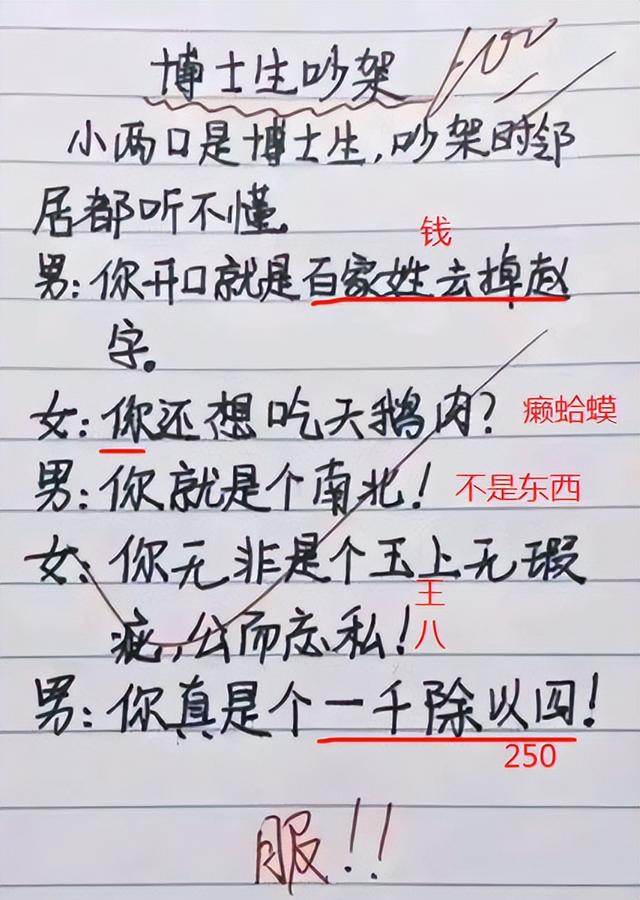 博士生吵架
100
小两口是博士生,吵架时邻
居都听不懂。
钱
男:你开口就是百家姓去掉赵
字。
女:你还想吃天鹅肉?
癞蛤蟆
男:你就是个南北!
不是东西
女:你无非是个玉上无瑕
王
疵,公而忘私!
八
男:你真是个一千除以四!
250
服!!